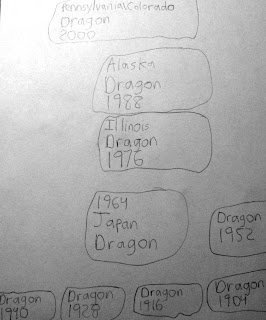 Pennsylvania\Colorado
Dragon
2000
Alaska
Dragon
1988
Illinois
Dragon
1976
1964
Japan
Dragon
Dragon
1952
Dragon
1940
Dragon
1928
Dragon
1916
Dragon
1904